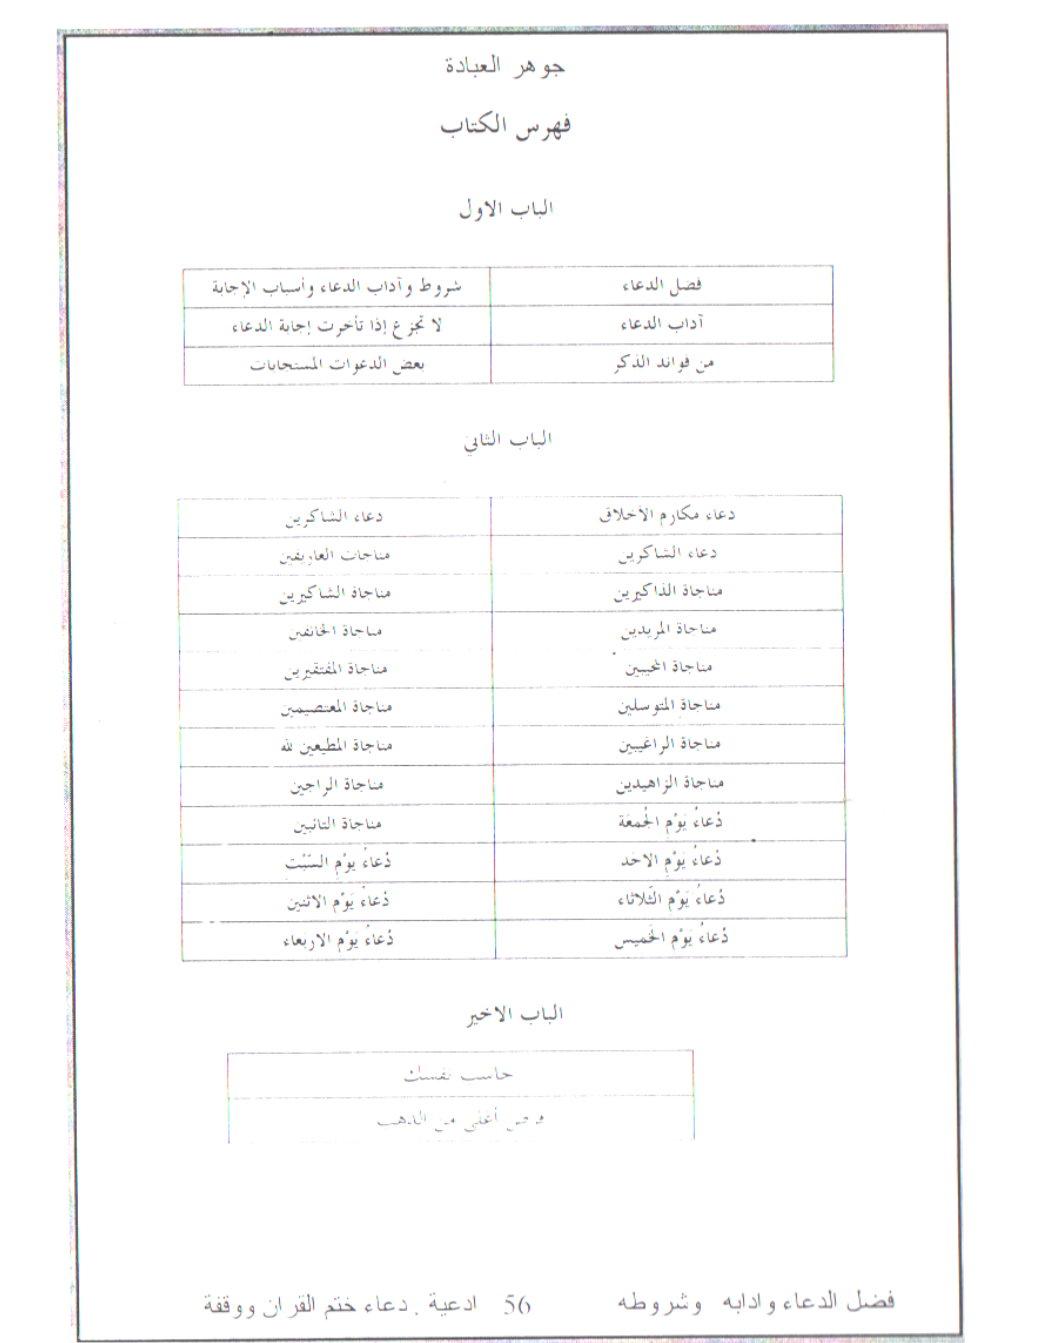 جوهر العبادة
فهرس الكتاب
الباب الاول
فضل الدعاء شروط وآداب الدعاء وأسباب الإجابة
آداب الدعاء لا تجزع إذا تأخرت إجابة الدعاء
من فوائد الذكر بعض الدعوات المستجابات
الباب الثاني
دعاء مكارم الأخلاق دعاء الشاكرين
دعاء الشاكرين مناجات العاريفين
مناجاة الذاكيرين مناجاة الشاكيرين
مناجاة المريدين مناجاة الخائفين
مناجاة المحيبين مناجاة المفتقيرين
مناجاة المتوسلين مناجاة المعتصيمين
مناجاة الراغيبين مناجاة المطيعين لله
مناجاة الزاهيدين مناجاة الراجين
دُعاءُ يَوْمِ الجُمعَة مناجاة التائبين
دُعاءُ يَوْمِ الاحَد دُعاءُ يوْمِ السَّبْتِ
دُعاءُ يَوْم الثَّلاثاء دُعاءُ يَوْم الاثنين
دُعاءُ يَوْم الخَميس دُعاءُ يَوْم الاربَعاء
الباب الاخير
حاسب نفسك
أغلى من الذهب
فضل الدعاء وادابه وشروطه 56 ادعية . دعاء ختم القران ووقفة